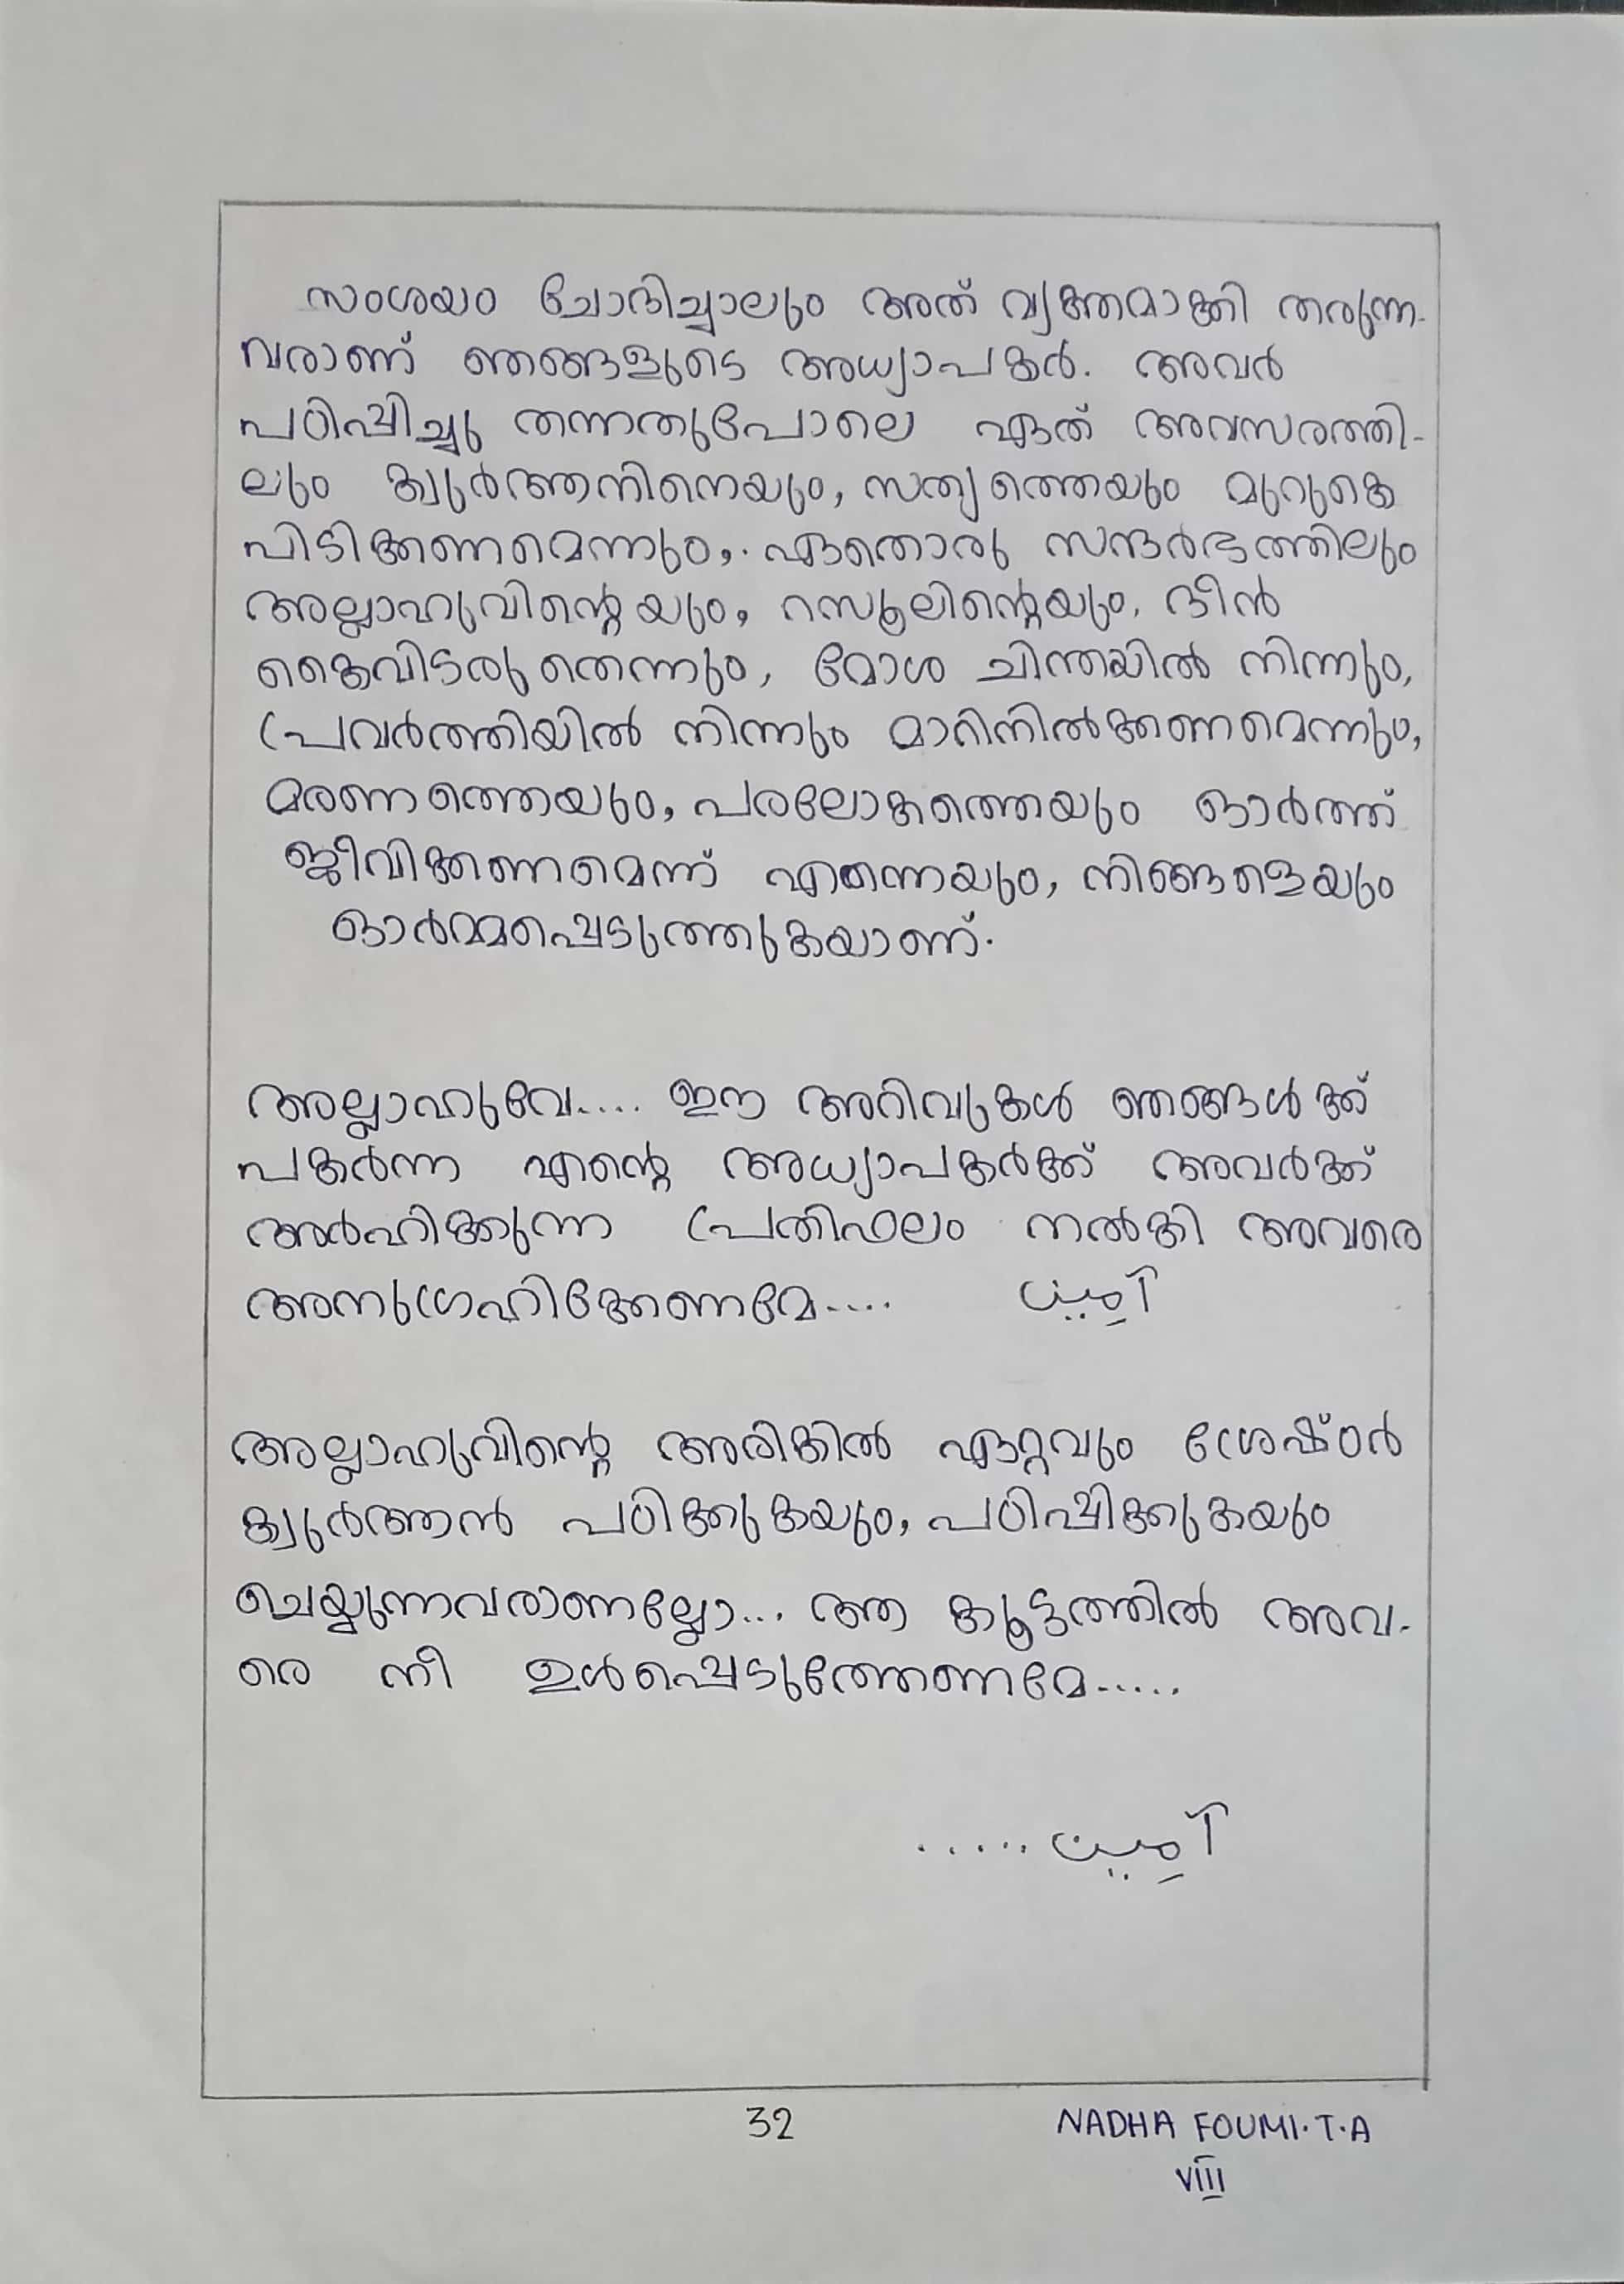 സംശയം ചോദിച്ചാലും അത് വ്യക്തമാക്കി തരുന്ന-
വരാണ് ഞങ്ങളുടെ അധ്യാപകർ. അവർ
പഠിപ്പിച്ചു തന്നതുപോലെ ഏത് അവസരത്തി-
ലും ക്വുർആനിനെയും, സത്യത്തെയും മുറുകെ
പിടിക്കണമെന്നും, ഏതൊരു സന്ദർഭത്തിലും
അല്ലാഹുവിന്റെയും, റസൂലിന്റെയും, ദീൻ
കൈവിടരുതെന്നും, മോശ ചിന്തയിൽ നിന്നും,
പ്രവർത്തിയിൽ നിന്നും മാറിനിൽക്കണമെന്നും,
മരണത്തെയും, പരലോകത്തെയും ഓർത്ത്
ജീവിക്കണമെന്ന് എന്നെയും, നിങ്ങളെയും
ഓർമ്മപ്പെടുത്തുകയാണ്.
അല്ലാഹുവേ.... ഈ അറിവുകൾ ഞങ്ങൾക്ക്
പകർന്ന എന്റെ അധ്യാപകർക്ക് അവർക്ക്
അർഹിക്കുന്ന പ്രതിഫലം നൽകി അവരെ
അനുഗ്രഹിക്കേണമേ.... آمِين
അല്ലാഹുവിന്റെ അരികിൽ ഏറ്റവും ശ്രേഷ്ഠർ
ക്വുർആൻ പഠിക്കുകയും, പഠിപ്പിക്കുകയും
ചെയ്യുന്നവരാണല്ലോ... ആ കൂട്ടത്തിൽ അവ-
രെ നീ ഉൾപ്പെടുത്തേണമേ.....
آمِين.....
32 NADHA FOUMI.T.A
VIII